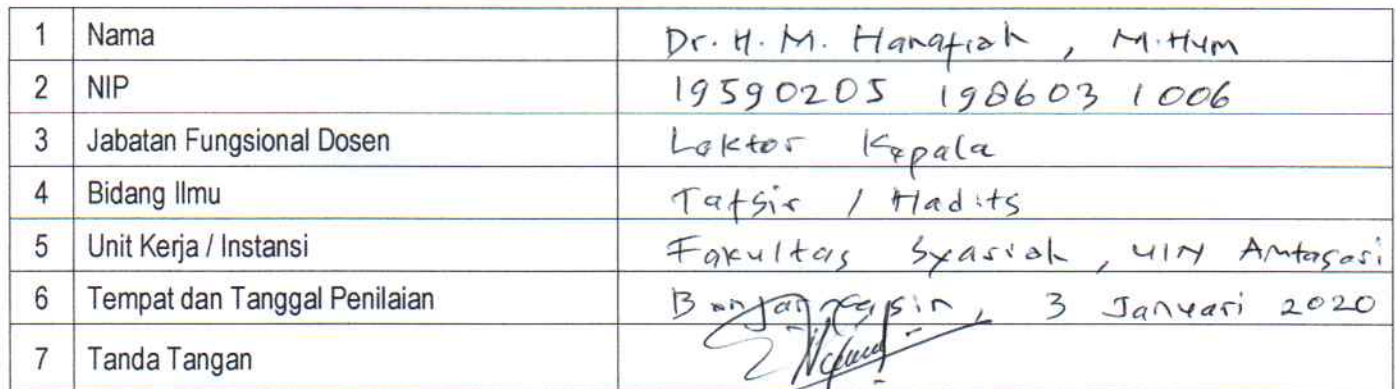 1 Nama Dr. H. M. Hanafiah, M.Hum
2 NIP 19590205 198603 1 006
3 Jabatan Fungsional Dosen Lektor Kepala
4 Bidang Ilmu Tafsir / Hadits
5 Unit Kerja / Instansi Fakultas Syariah, UIN Antasari
6 Tempat dan Tanggal Penilaian Banjarmasin, 3 Januari 2020
7 Tanda Tangan